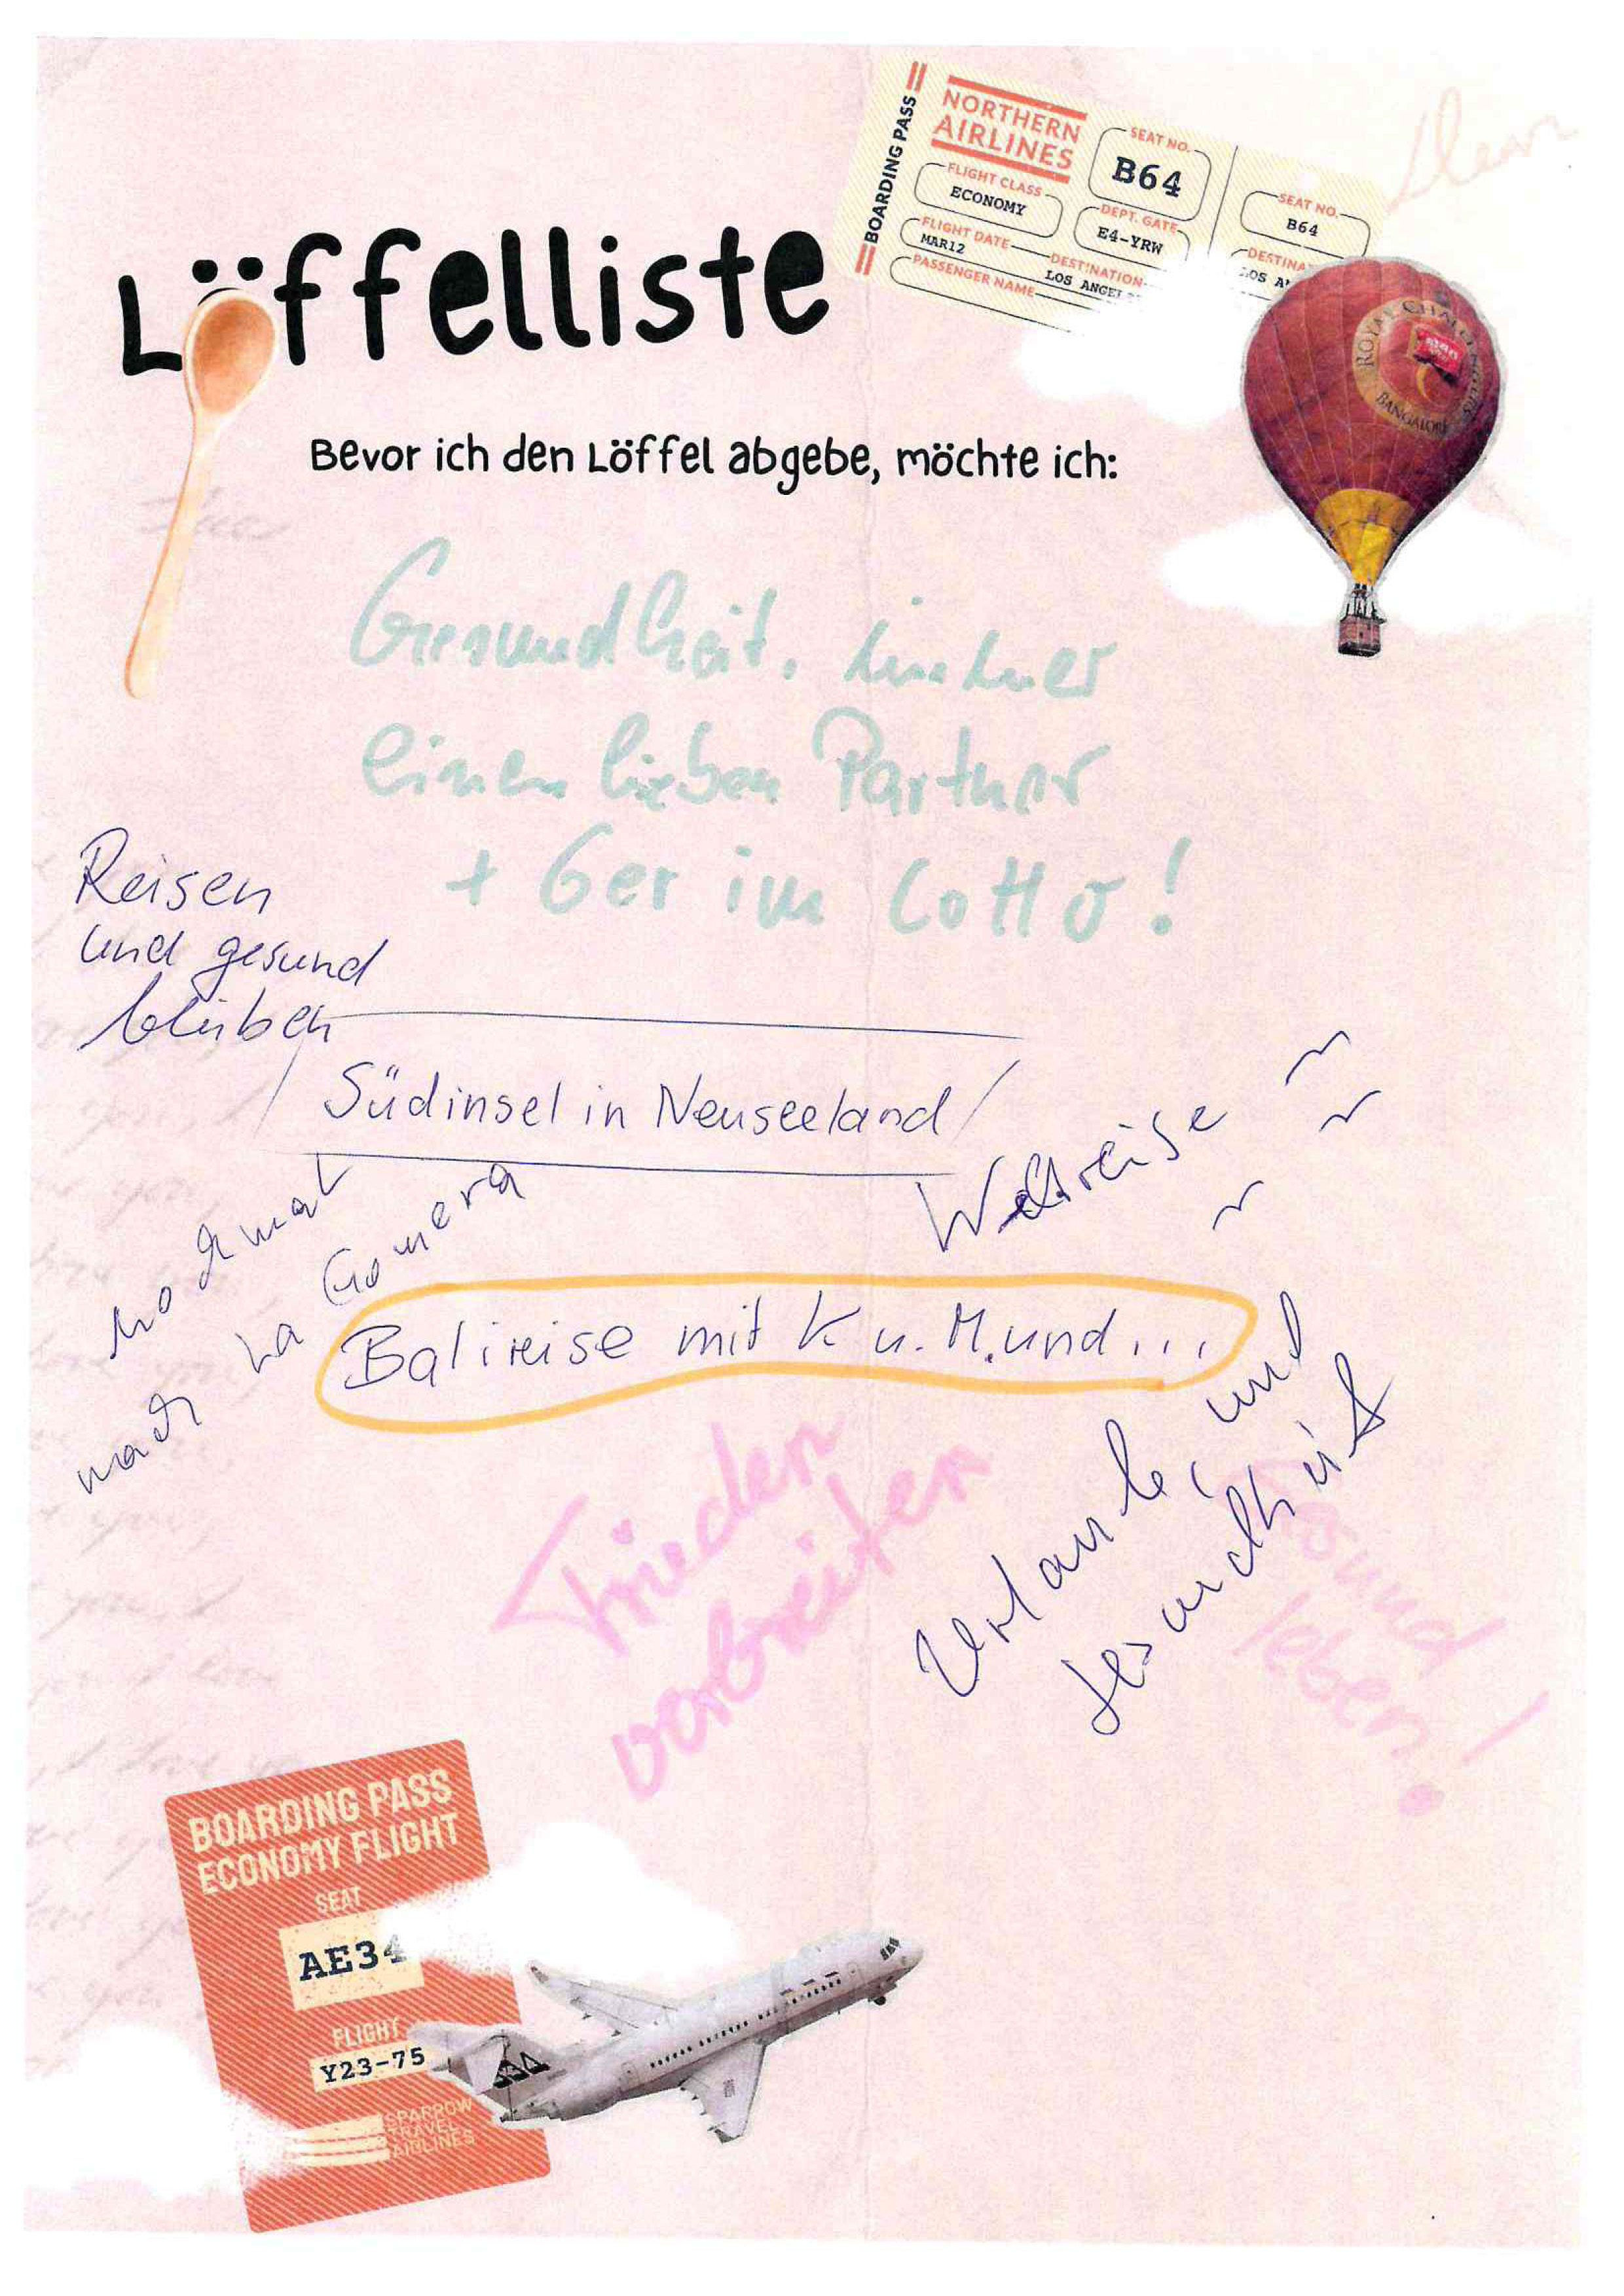 BOARDING PASS
NORTHERN
AIRLINES
FLIGHT CLASS
ECONOMY
SEAT NO.
B64
DEPT. GATE
E4-YRW
FLIGHT DATE
MAR12
DESTINATION
LOS ANGEL
PASSENGER NAME
SEAT NO.
B64
DESTINA
LOS A
Löffelliste
Bevor ich den Löffel abgebe, möchte ich:
ROYAL CHALLENGERS
BANGALORE
Gesundheit, immer
einen lieben Partner
+ 6er im Lotto!
Reisen
und gesund
bleiben
Südinsel in Neuseeland
Weltreise
nochmal
nach La Gomera
Balireise mit K u. M. und...
Frieden
verbreiten
Urlaube, und
Gesundheit
Gesund
leben!
BOARDING PASS
ECONOMY FLIGHT
SEAT
AE34
FLIGHT
Y23-75
SPARROW
TRAVEL
AIRLINES